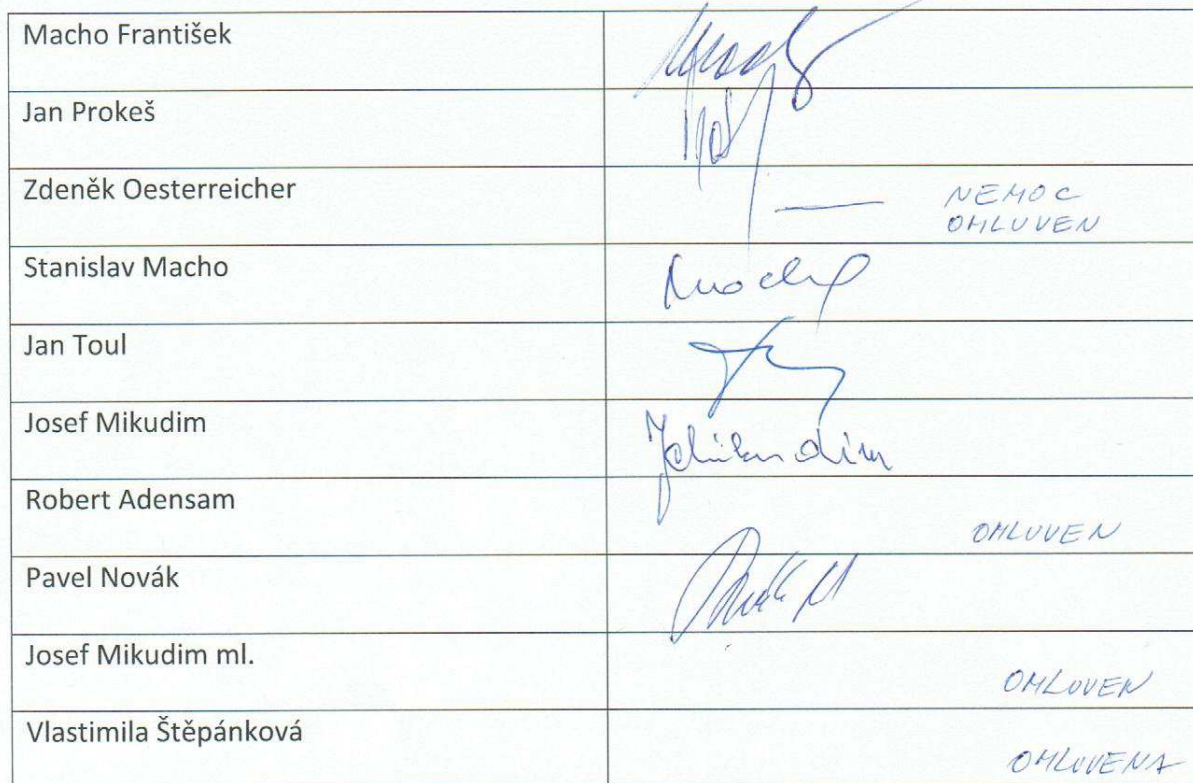 Macho František
Jan Prokeš
Zdeněk Oesterreicher
NEMOC
OMLUVEN
Stanislav Macho
Jan Toul
Josef Mikudim
Robert Adensam
OMLUVEN
Pavel Novák
Josef Mikudim ml.
OMLUVEN
Vlastimila Štěpánková
OMLUVENA